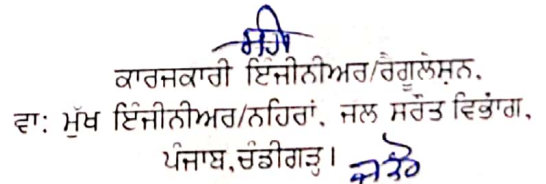 ਸਹੀ
ਕਾਰਜਕਾਰੀ ਇੰਜੀਨੀਅਰ/ਰੈਗੂਲੇਸ਼ਨ,
ਵਾ: ਮੁੱਖ ਇੰਜੀਨੀਅਰ/ਨਹਿਰਾਂ, ਜਲ ਸਰੋਤ ਵਿਭਾਗ,
ਪੰਜਾਬ,ਚੰਡੀਗੜ੍ਹ।